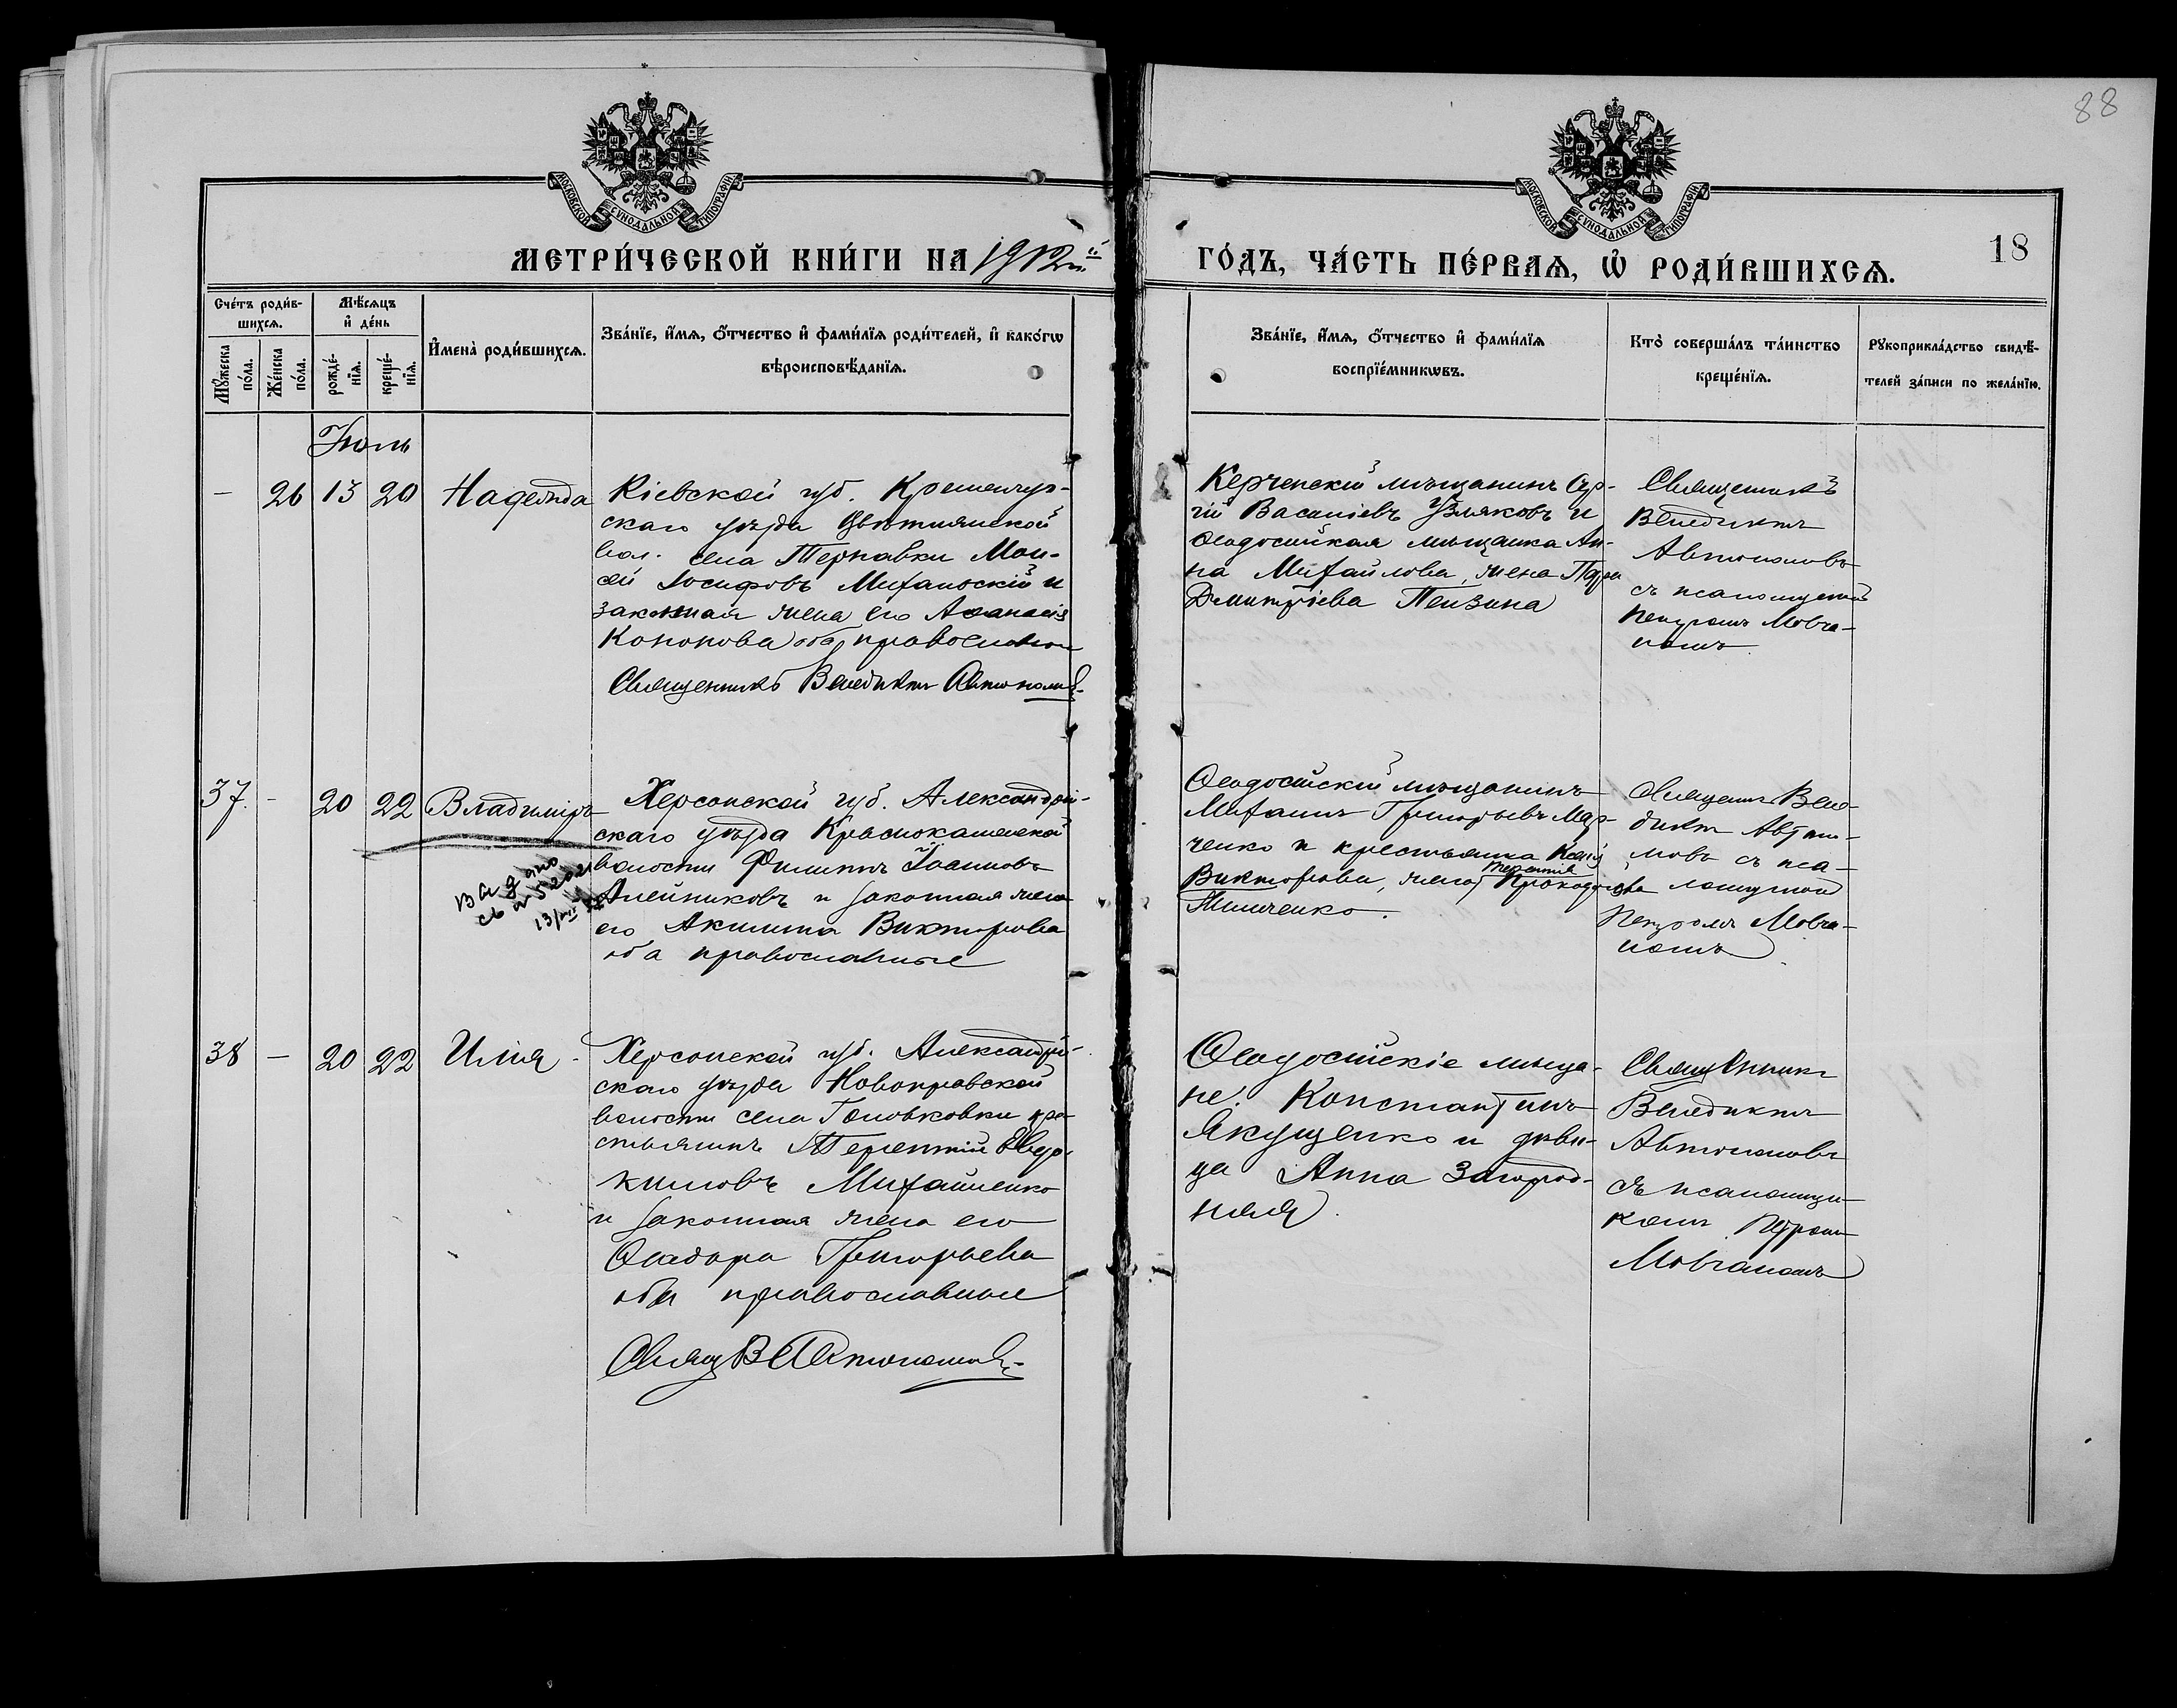 88
МОСКОВСКОЙ СУНОДАЛЬНОЙ ТИПОГРАФІИ
МОСКОВСКОЙ СУНОДАЛЬНОЙ ТИПОГРАФІИ
МЕТРИ́ЧЕСКОЙ КНИ́ГИ НА 1912й
ГО́ДЪ, ЧА́СТЬ ПЕ́РВАѦ, Ѡ҆ РОДИ́ВШИХСѦ.
18
Сче́тъ роди́в-
шихсѧ.
Мꙋ́жеска
по́ла.
Же́нска
по́ла.
Мѣ́сѧцъ
и҆ де́нь
рожде́-
нїѧ.
креще́-
нїѧ.
И҆мена̀ роди́вшихсѧ.
Зва́нїе, и҆́мѧ, ѻ҆́тчество и҆ фами́лїѧ роди́телей, и҆ како́гѡ
вѣроисповѣ́данїѧ.
Зва́нїе, и҆́мѧ, ѻ҆́тчество и҆ фами́лїѧ
воспрїе́мникѡвъ.
Кто̀ соверша́лъ та́инство
креще́нїѧ.
Рꙋкоприкла́дство свидѣ́-
телей за́писи по жела́нїю.
Іюль
- 26 13 20 Надежда
Кіевской губ. Кременчуг-
скаго уѣзда Цвѣтнянской
вол. села Терновки Мои-
сей Іосифовъ Михальскій и
законная жена его Аѳанасія
Кононова оба православн
Священникъ Венедиктъ Автономовъ
Керченскій мѣщанинъ Сер-
гій Васильевъ Узляковъ и
Ѳеодосійская мѣщанка Ан-
на Михайлова, жена Петра
Дмитріева Пензина
Священникъ
Венедиктъ
Автономовъ
съ псаломщикомъ
Петромъ Мовча-
номъ
37. - 20 22 Владиміръ
Выдано
св №
Херсонской губ. Александрій-
скаго уѣзда Краснокаменской
волости Филиппъ Іоанновъ
Алейниковъ и законная жена
его Акилина Викторова
оба православные
Ѳеодосійскій мѣщанинъ
Михаилъ Григорьевъ Мар-
ченко и крестьянка Ксенія
Викторова, жена Прокофіева
Терентія
Тимченко.
Священ. Вене-
диктъ Автоно-
мовъ съ пса-
ломщикомъ
Петромъ Мовча-
номъ
38 - 20 22 Илія
Херсонской губ. Александрій-
скаго уѣзда Новопражской
волости села Головковки кре-
стьянинъ Терентій Евдо-
кимовъ Михайленко
и законная жена его
Ѳеодора Григорьева
оба православные
Свящ В Автономовъ
Ѳеодосійскіе мѣща-
не. Константинъ
Якущенко и дѣви-
ца Анна Загород-
няя.
Священникъ
Венедиктъ
Автономовъ
съ псаломщи-
комъ Петромъ
Мовчаномъ